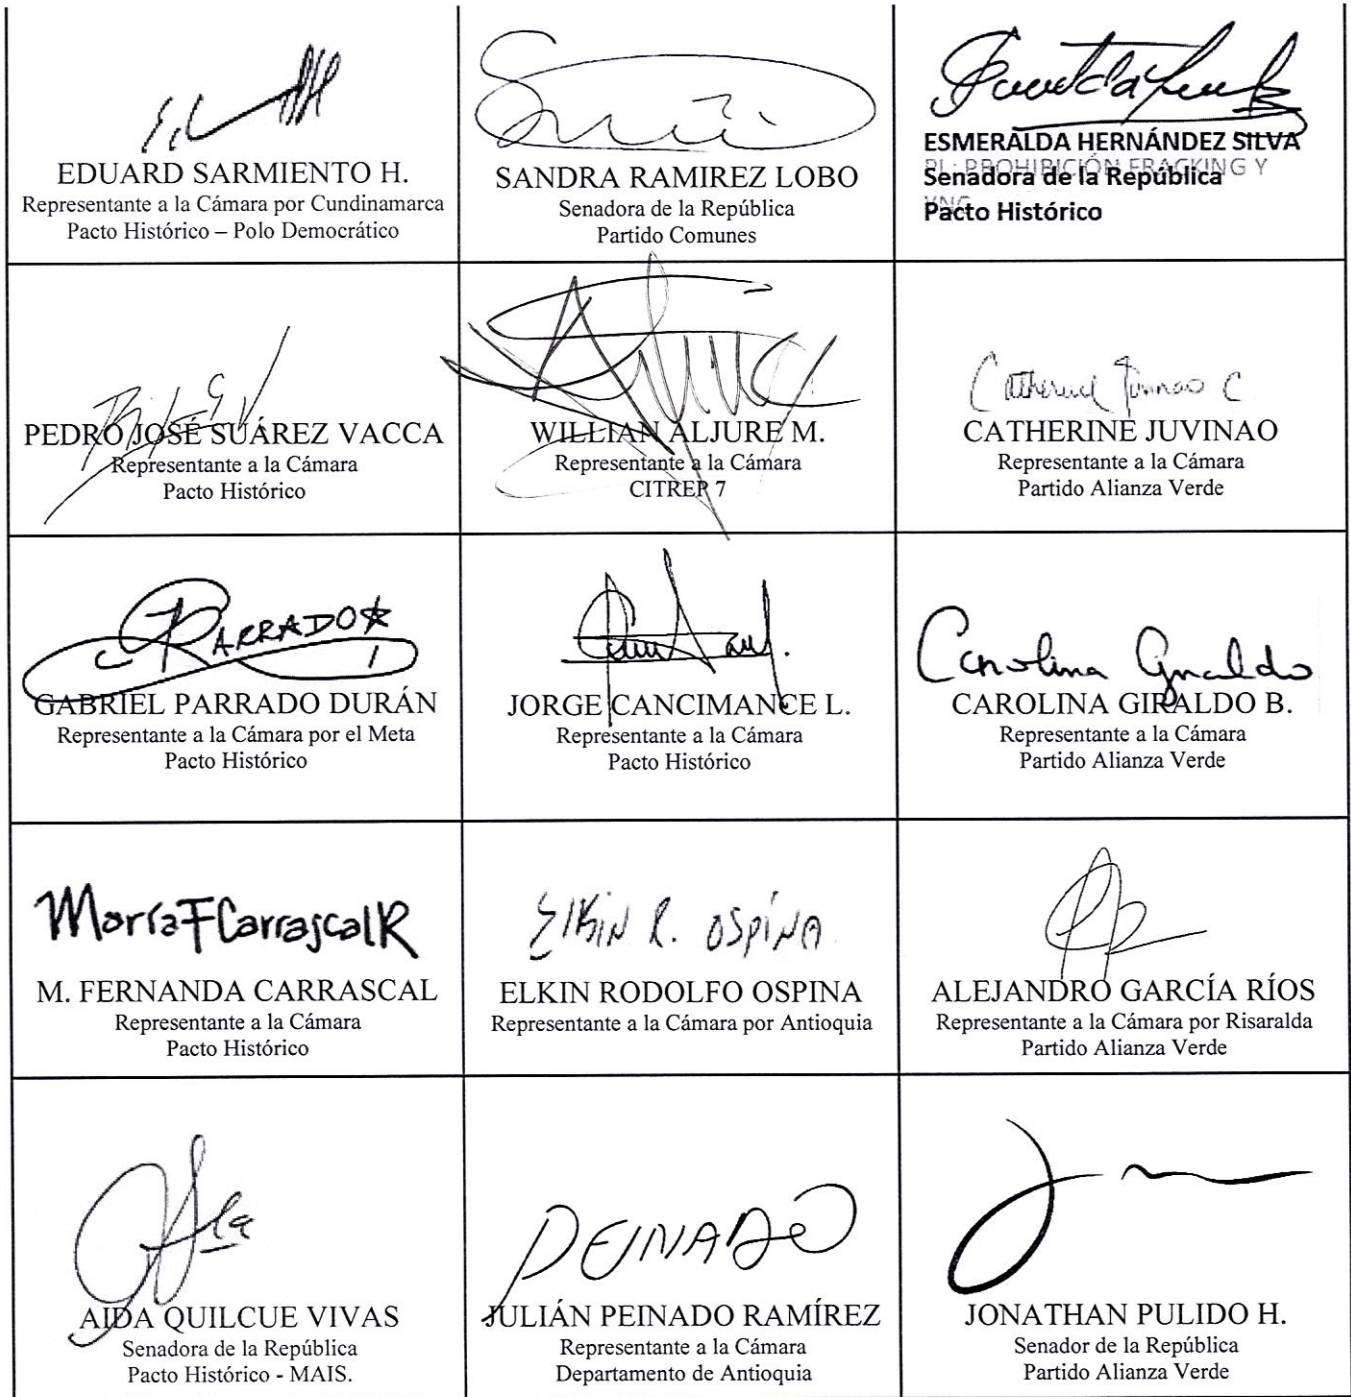 EDUARD SARMIENTO H.
Representante a la Cámara por Cundinamarca
Pacto Histórico – Polo Democrático
SANDRA RAMIREZ LOBO
Senadora de la República
Partido Comunes
ESMERALDA HERNÁNDEZ SILVA
PL: PROHIBICIÓN FRACKING Y
Senadora de la República
YNC
Pacto Histórico
PEDRO JOSÉ SUÁREZ VACCA
Representante a la Cámara
Pacto Histórico
WILLIAN ALJURE M.
Representante a la Cámara
CITREP 7
Catherine Juvinao C
CATHERINE JUVINAO
Representante a la Cámara
Partido Alianza Verde
PARRADO
GABRIEL PARRADO DURÁN
Representante a la Cámara por el Meta
Pacto Histórico
JORGE CANCIMANCE L.
Representante a la Cámara
Pacto Histórico
Carolina Giraldo
CAROLINA GIRALDO B.
Representante a la Cámara
Partido Alianza Verde
María F Carrascal R
M. FERNANDA CARRASCAL
Representante a la Cámara
Pacto Histórico
ElKiN R. OSPiNA
ELKIN RODOLFO OSPINA
Representante a la Cámara por Antioquia
ALEJANDRO GARCÍA RÍOS
Representante a la Cámara por Risaralda
Partido Alianza Verde
AIDA QUILCUE VIVAS
Senadora de la República
Pacto Histórico - MAIS.
PEINADO
JULIÁN PEINADO RAMÍREZ
Representante a la Cámara
Departamento de Antioquia
JONATHAN PULIDO H.
Senador de la República
Partido Alianza Verde